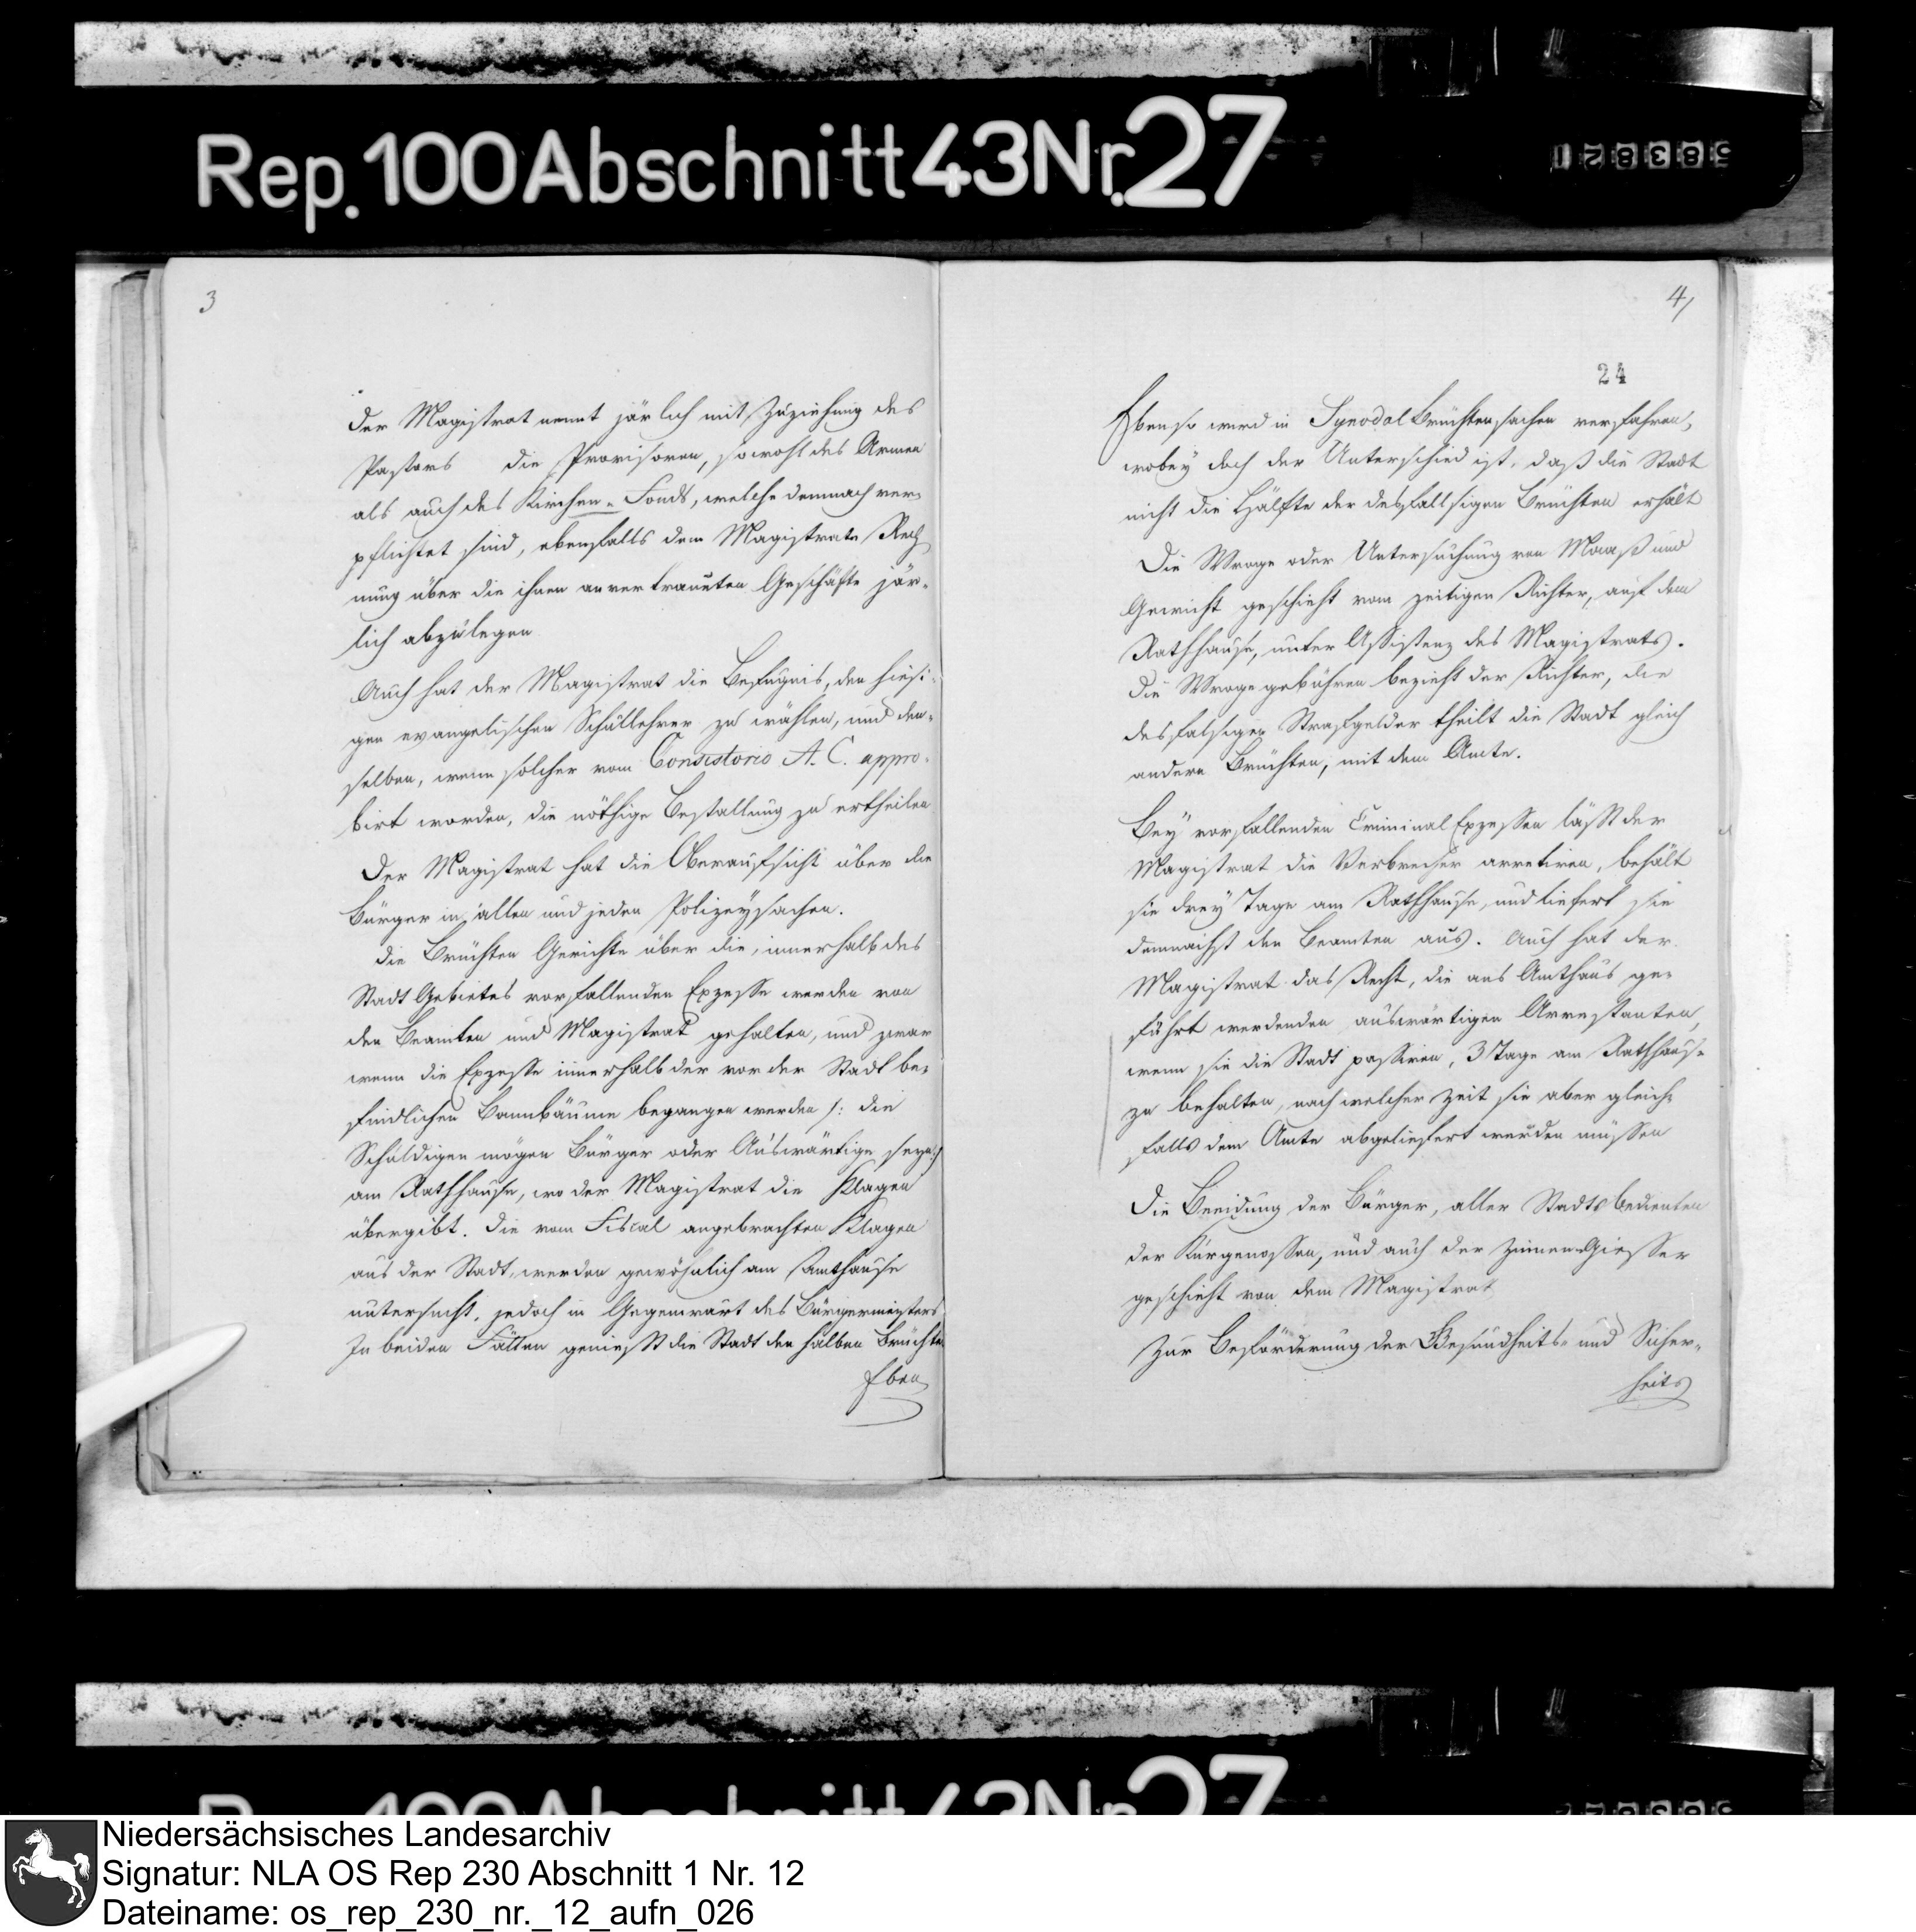 Rep. 100 Abschnitt 43 Nr. 27
3
Der Magistrat nennt järlich mit Zuziehung des
Pastors die Provisoren, sowohl des Armen
als auch des Kirchen-Fonds, welche demnach ver-
pflichtet sind, ebenfalls dem Magistrate Rech
nung über die ihnen anvertrauten Geschäfte jär-
lich abzulegen
Auch hat der Magistrat die Befugnis, den hiesi-
gen evangelischen Schullehrer zu wählen, und den-
selben, wenn solcher vom Consistorio A. C. appro-
birt worden, die nöthige Bestallung zu ertheilen
Der Magistrat hat die Oberaufsicht über die
Bürger in allen und jeden Polizeysachen.
Die Brüchten Gerichte über die, innerhalb des
Stadt Gebietes vorfallenden Exzesse werden von
den Beamten und Magistrat gehalten, und zwar
wenn die Exzesse innerhalb der vor der Stadt be-
findlichen Bannbäume begangen werden /: die
Schuldigen mögen Bürger oder Auswärtige seyn :/
am Rathhause, wo der Magistrat die Klagen
übergibt. Die vom Fiscal angebrachten Klagen
aus der Stadt, werden gewöhnlich am Amthause
untersucht, jedoch in Gegenwart des Bürgermeisters
In beiden Fällen genießt die Stadt den halben Brüchten
Eben
4
24
Ebenso wird in Synodal Brüchtensachen verfahren,
wobey doch der Unterschied ist, daß die Stadt
nicht die Hälfte der desfallsigen Brüchten erhält
Die Wroge oder Untersuchung von Maaß und
Gewicht geschieht vom zeitigen Richter, auf dem
Rathhause, unter Assistenz des Magistrats.
Die Wrogegebühren bezieht der Richter, die
desfalsigen Strafgelder theilt die Stadt gleich
andern Brüchten, mit dem Amte.
Bey vorfallenden Criminal Exzessen läßt der
Magistrat die Verbrecher arretiren, behält
sie drey Tage am Rathhause, und liefert sie
demnächst den Beamten aus. Auch hat der
Magistrat das Recht, die ans Amthaus ge-
führt werdenden auswärtigen Arrestanten,
wenn sie die Stadt passiren, 3 Tage am Rathhaus-
zu behalten, nach welcher Zeit sie aber gleich-
falls dem Amte abgeliefert werden müssen
Die Beeidung der Bürger, aller Stadtsbedienten
der Kürgenossen, und auch der Zinnen-Giesser
geschieht von dem Magistrat
Zur Beförderung der Gesundheits- und Sicher-
heits
Niedersächsisches Landesarchiv
Signatur: NLA OS Rep 230 Abschnitt 1 Nr. 12
Dateiname: os_rep_230_nr._12_aufn_026